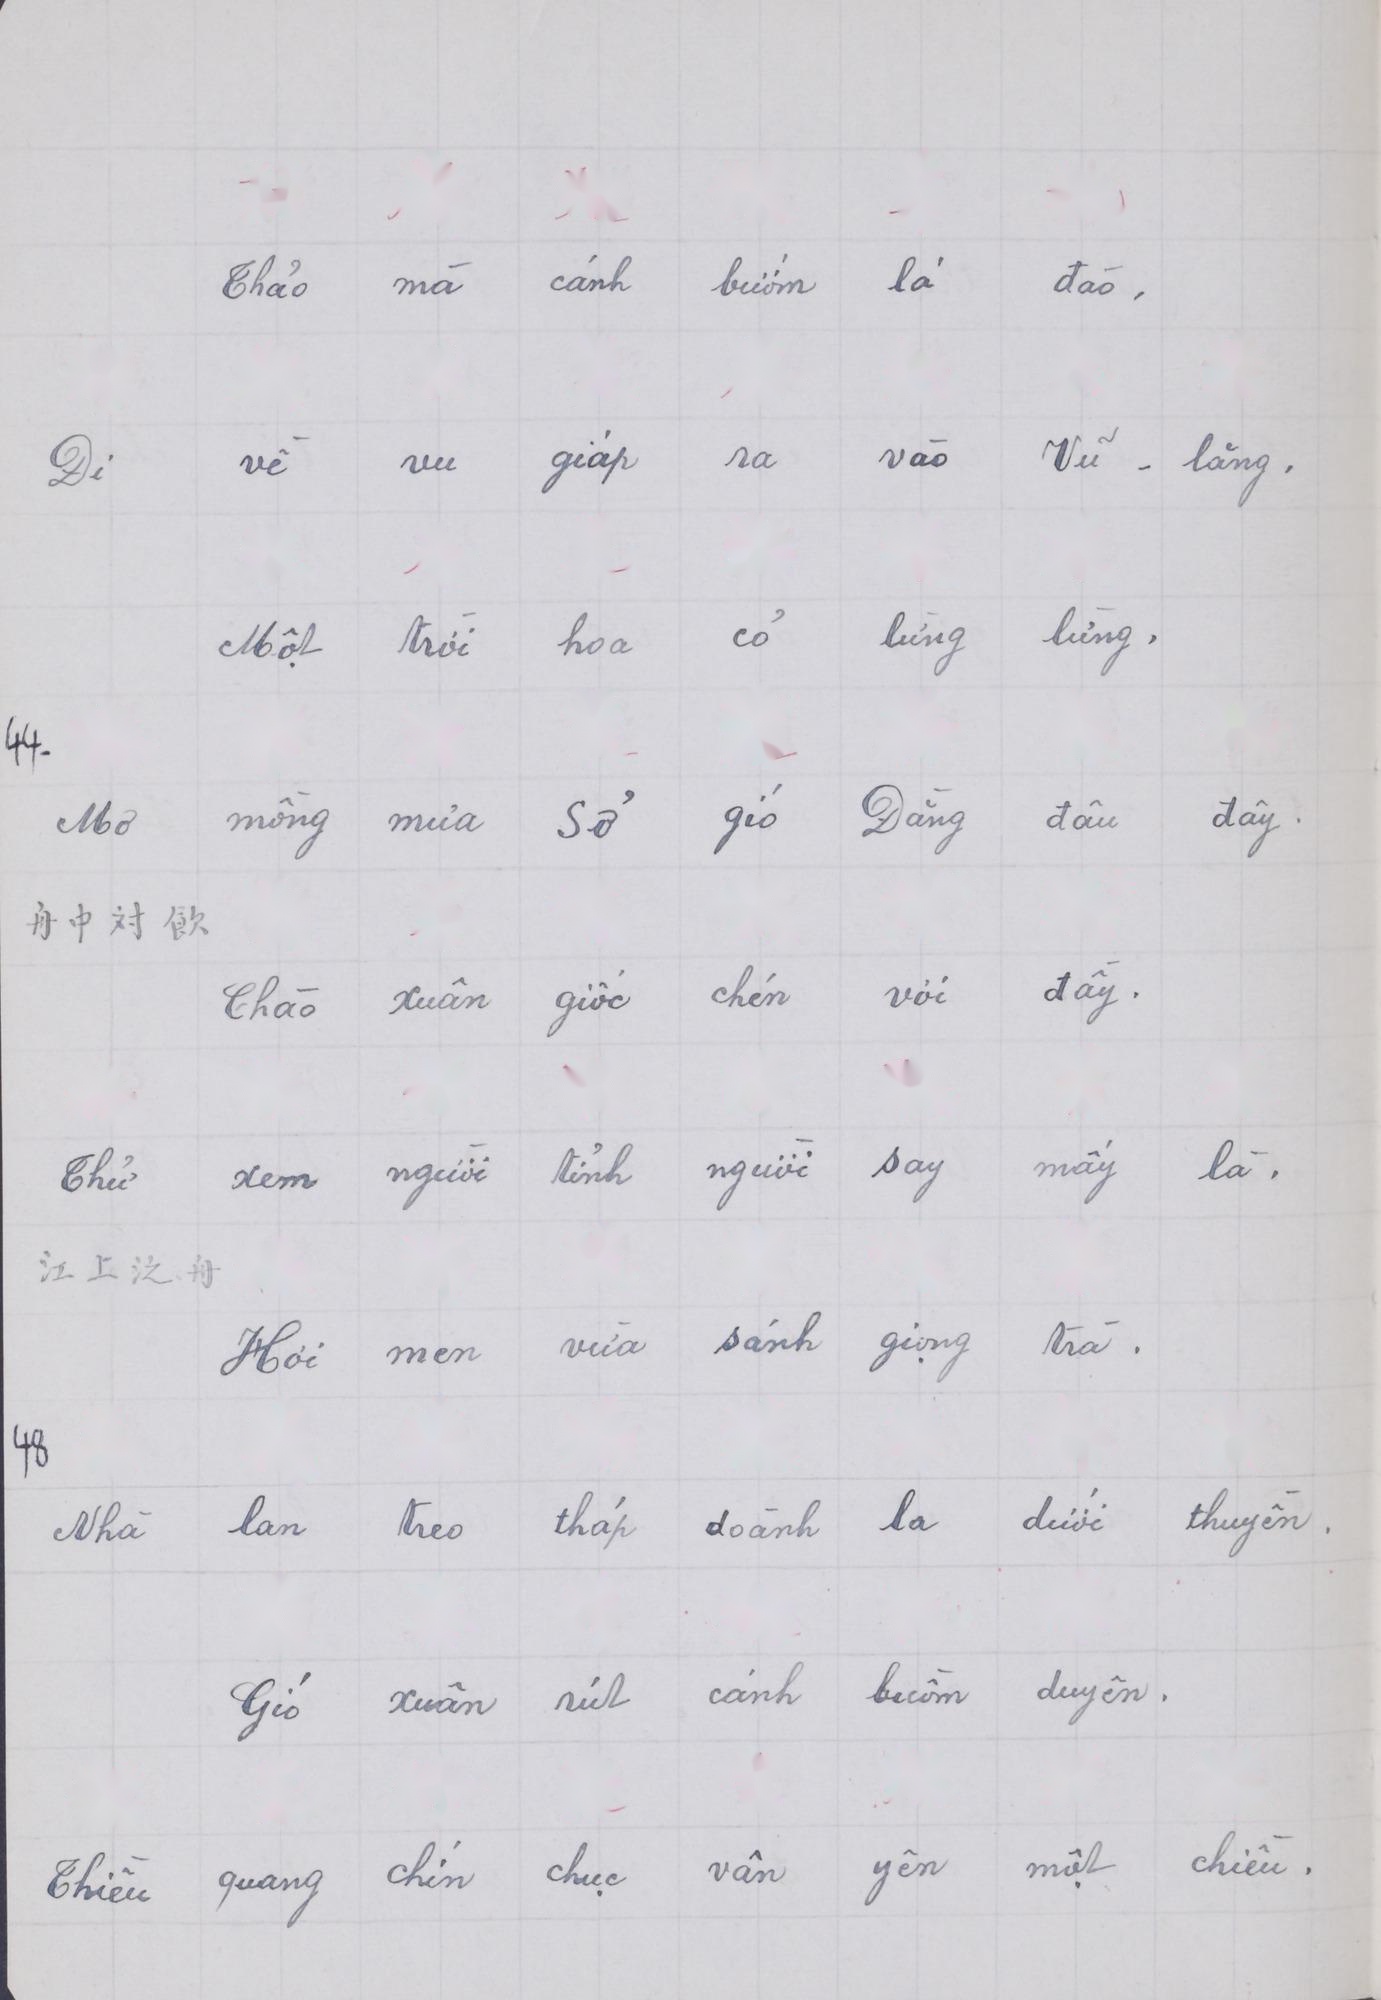 Thảo mã cánh bướm lá đào,
Đi về vu giáp ra vào Vũ - lăng.
Một trời hoa cỏ lừng lừng.
44-
Mơ mòng mưa Sở gió Đằng đâu đây.
舟中対飲
Chào xuân giốc chén vơi đầy.
Thử xem người tỉnh người say mấy là.
江上泛舟
Hơi men vừa sánh giọng trà.
48
Nhà lan treo tháp doành la dưới thuyền.
Gió xuân rút cánh buồm duyên.
Thiều quang chín chục vân yên một chiều.